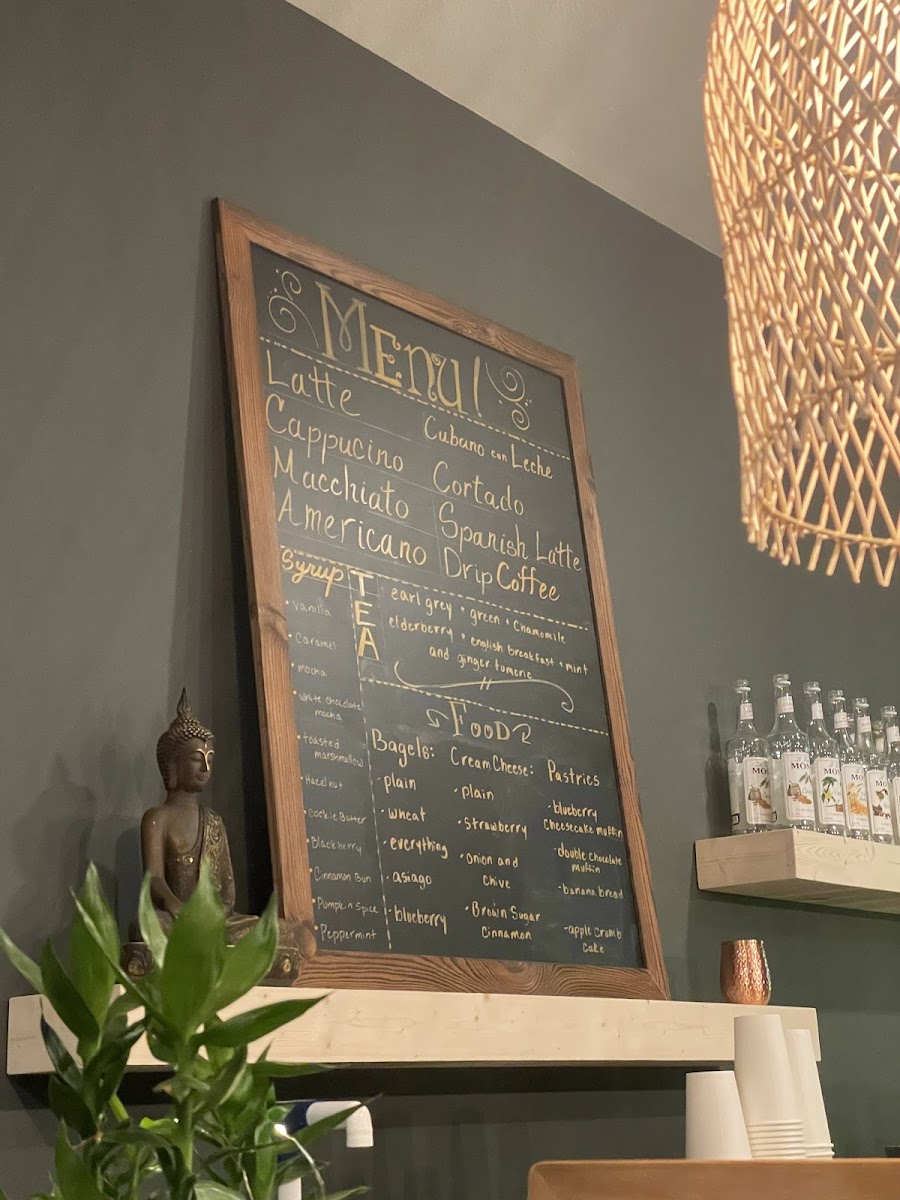 Menu!
Latte
Cappucino
Macchiato
Americano
Cubano con Leche
Cortado
Spanish Latte
Drip Coffee
Syrup
• Vanilla
• Caramel
• mocha
• white chocolate
mocha
• toasted
marshmallow
• Hazelnut
• Cookie Butter
• Blackberry
• Cinnamon Bun
• Pumpkin Spice
• Peppermint
TEA
earl grey • green • chamomile
elderberry • english breakfast • mint
and ginger tumeric
Food
Bagels:
- plain
- wheat
- everything
- asiago
- blueberry
Cream Cheese:
• plain
• strawberry
• onion and
chive
• Brown Sugar
Cinnamon
Pastries
- blueberry
cheesecake muffin
- double chocolate
muffin
- banana bread
- apple crumb
cake